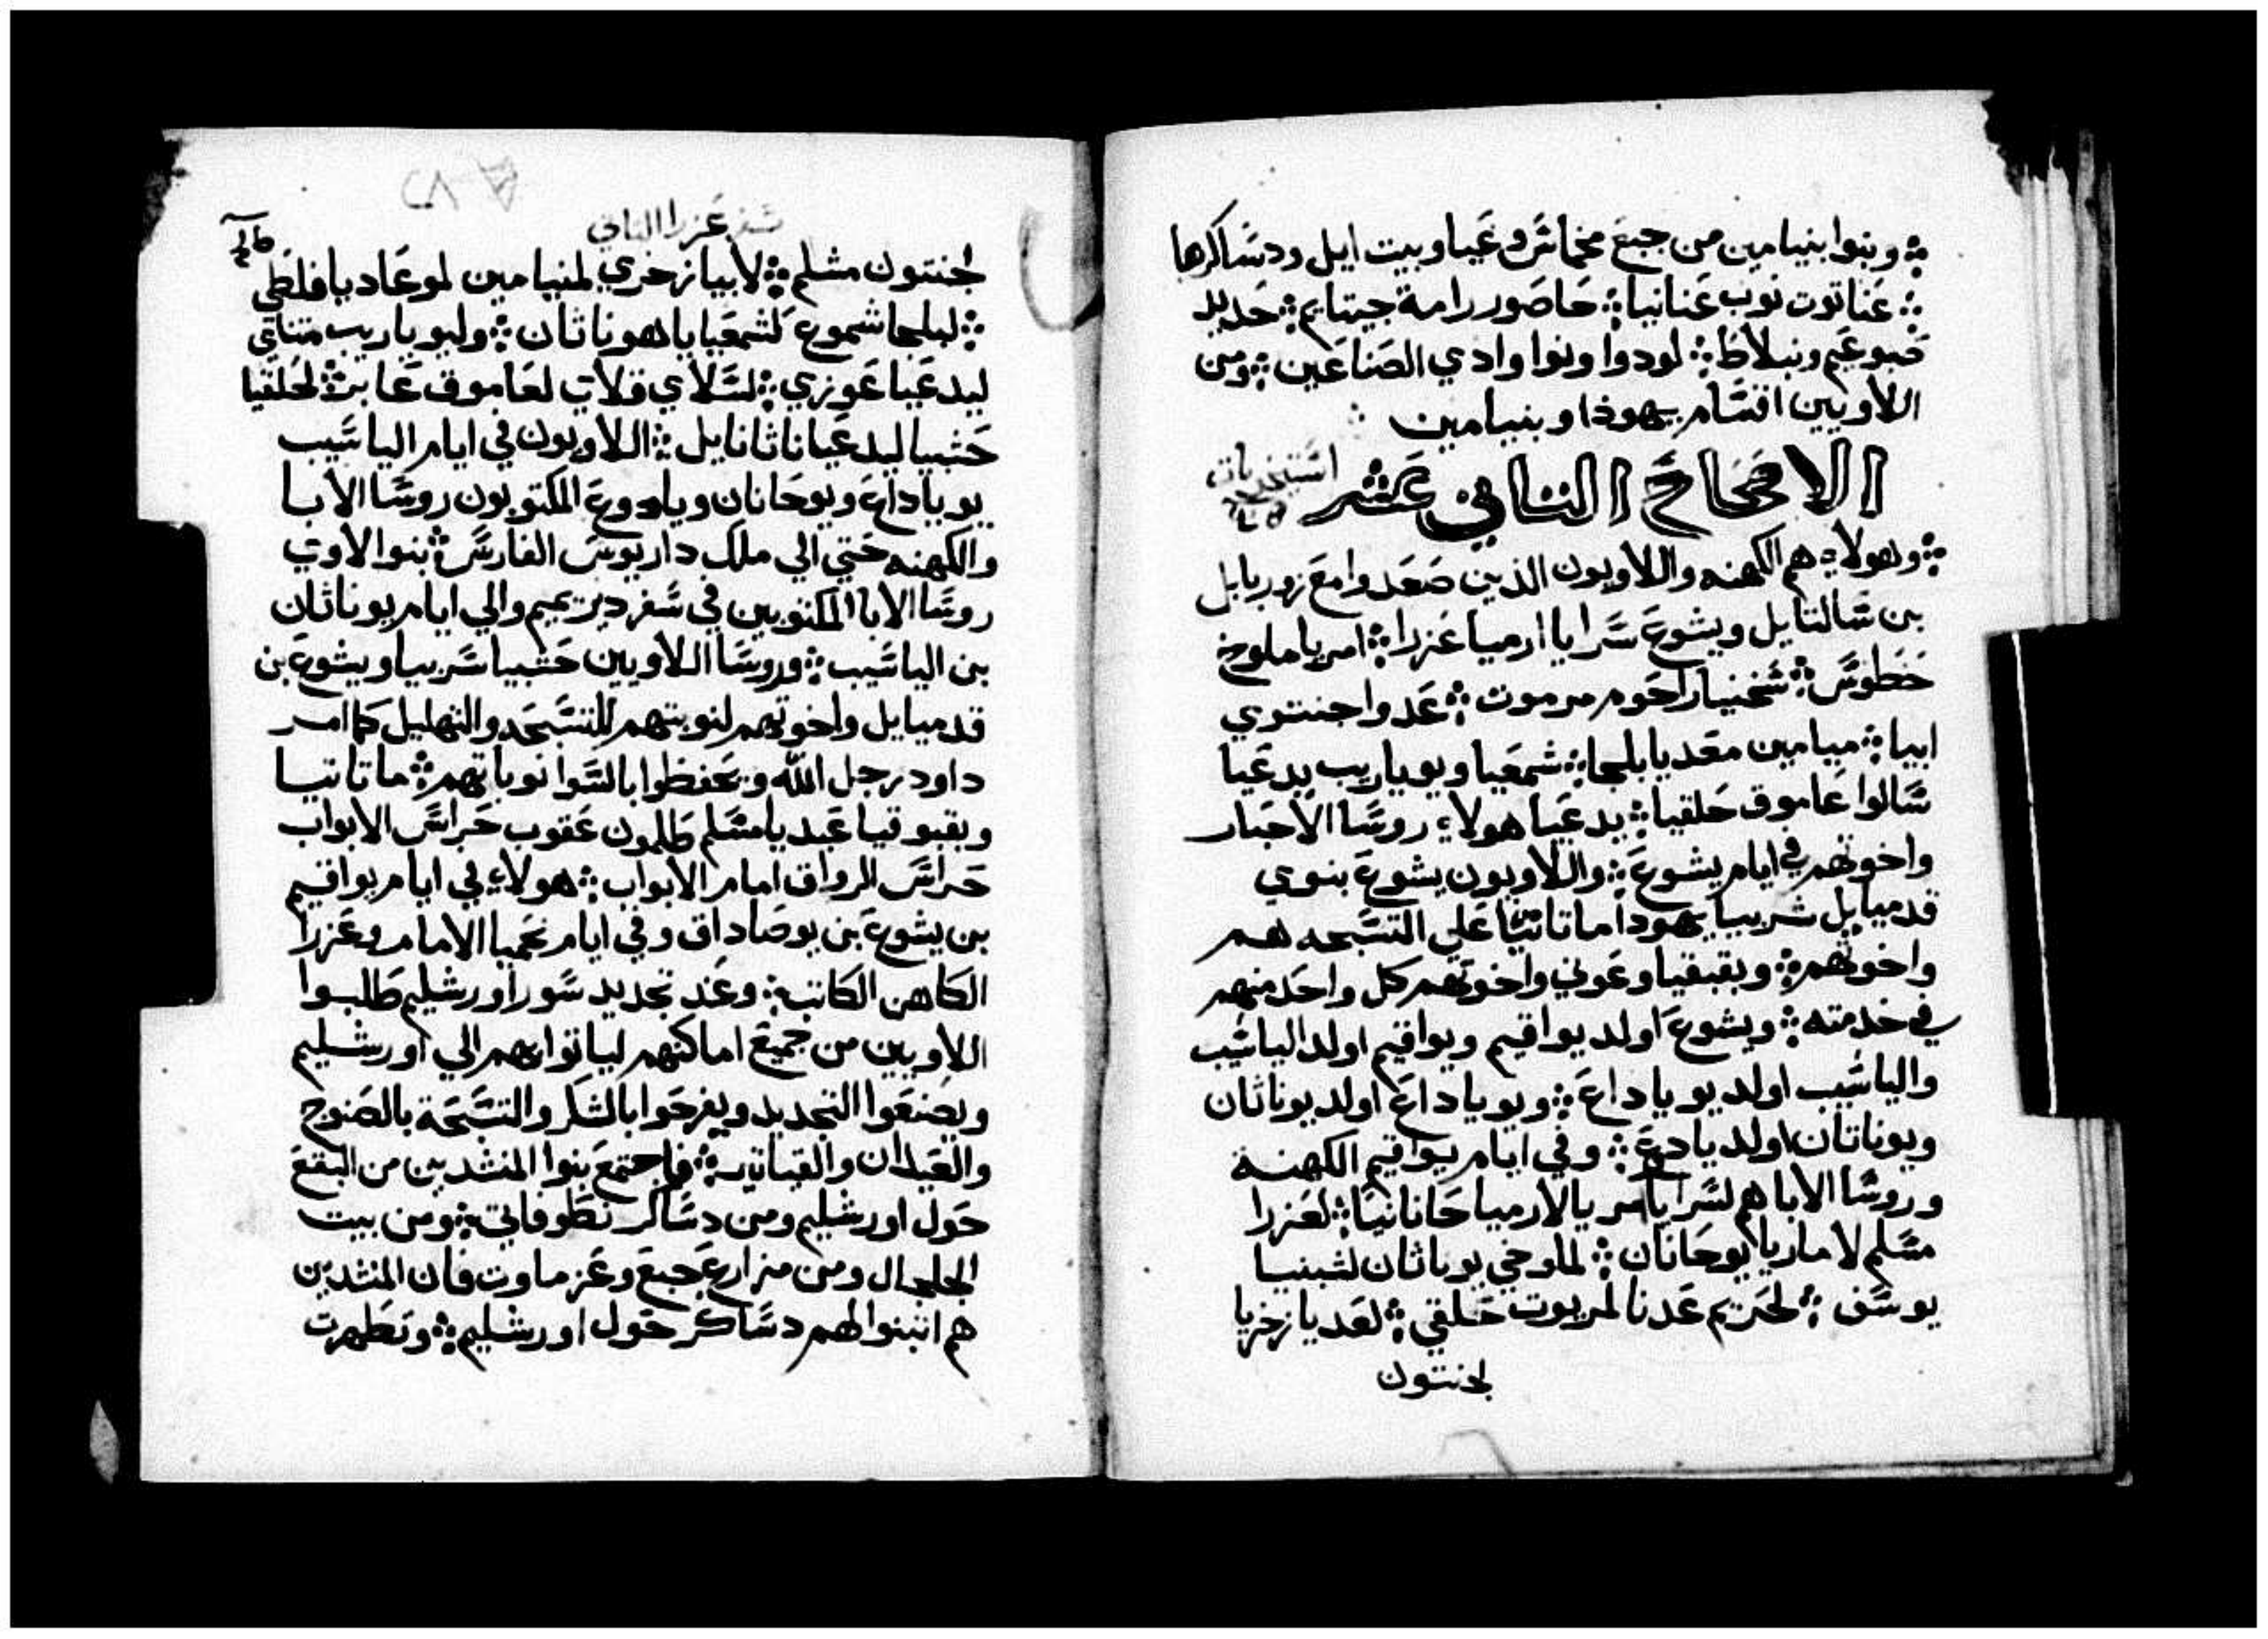 وبنوا بنيامين من جبع مخماش وعيا وبيت ايل ودساكرها
عناتوت نوب عنانيا حاصور رامة جيتايم حديد
ضبوعيم ونبلاط لودوا ونوا وادي الصناعين ومن
اللاويين اقسام يهوذا وبنيامين
الاصحاح الثاني عشر
وهولاء هم الكهنه واللاويون الذين صعدوا مع زوربابل
بن سالتايل ويشوع سرايا ارميا عزرا امريا ملوخ
خطوس شخنيا راحوم مرموت عدوا جنتوي
ابيا ميامين معديا بلجا شمعيا ويوياريب يدعيا
سالوا عاموق حلقيا يدعيا هولاء روسا الاحبار
واخوتهم في ايام يشوع واللاويون يشوع بنوي
قدميايل شربيا يهودا ماتانيا علي التسبحه هم
واخوتهم وبقبقيا وعوني واخوتهم كل واحد منهم
في خدمته ويشوع اولد يواقيم ويواقيم اولد الياشيب
والياشيب اولد يوياداع ويوياداع اولد يوناثان
ويوناثان اولد يادوع وفي ايام يواقيم الكهنة
وروسا الابا هم لسرايا مريا لارميا حانانيا لعزرا
مشلم لاماريا يوحانان لملوخي يوناثان لشبنيا
يوسف لحريم عدنا لمريوت حلقي لعديا زخريا
لجنتون
سفر عزرا الثاني
لجنتون مشلم لابيا زخري لمنيامين لموعاديا فلطي
لبلجا شموع لشمعيا ياهوناثان وليوياريب متناي
ليدعيا عوزي لسلاي قلاي لعاموق عابر لحلقيا
حشبيا ليدعيا ناثانايل اللاويون في ايام الياشيب
يوياداع ويوحانان ويادوع المكتوبون روسا الابا
والكهنه حتي الي ملك داريوس الفارسي بنوا لاوي
روسا الابا المكتوبين في سفر دبريميم والي ايام يوناثان
بن الياشيب وروسا اللاويين حشبيا شربيا ويشوع بن
قدميايل واخوتهم لنوبتهم للتسبحه والتهليل كما امر
داود رجل الله ويحفظوا بالسوا نوباتهم ماتانيا
وبقبوقيا عبديا مشلم طلمون عقوب حراس الابواب
حراس الرواق امام الابواب هولاء في ايام يواقيم
بن يشوع بن يوصاداق وفي ايام نحميا الامام وعزرا
الكاهن الكاتب وعند تجديد سور اورشليم طلبوا
اللاويين من جميع اماكنهم لياتوا بهم الي اورشليم
ويصنعوا التجديد ويفرحوا بالشكر والتسبحة بالصنوج
والعيدان والقيثاير فاجتمع بنوا المنشدين من البقع
حول اورشليم ومن دساكر نطوفاتي ومن بيت
الجلجال ومن مزارع جبع وعزماوت فان المنشدين
هم ابتنوا لهم دساكر حول اورشليم وتطهرت